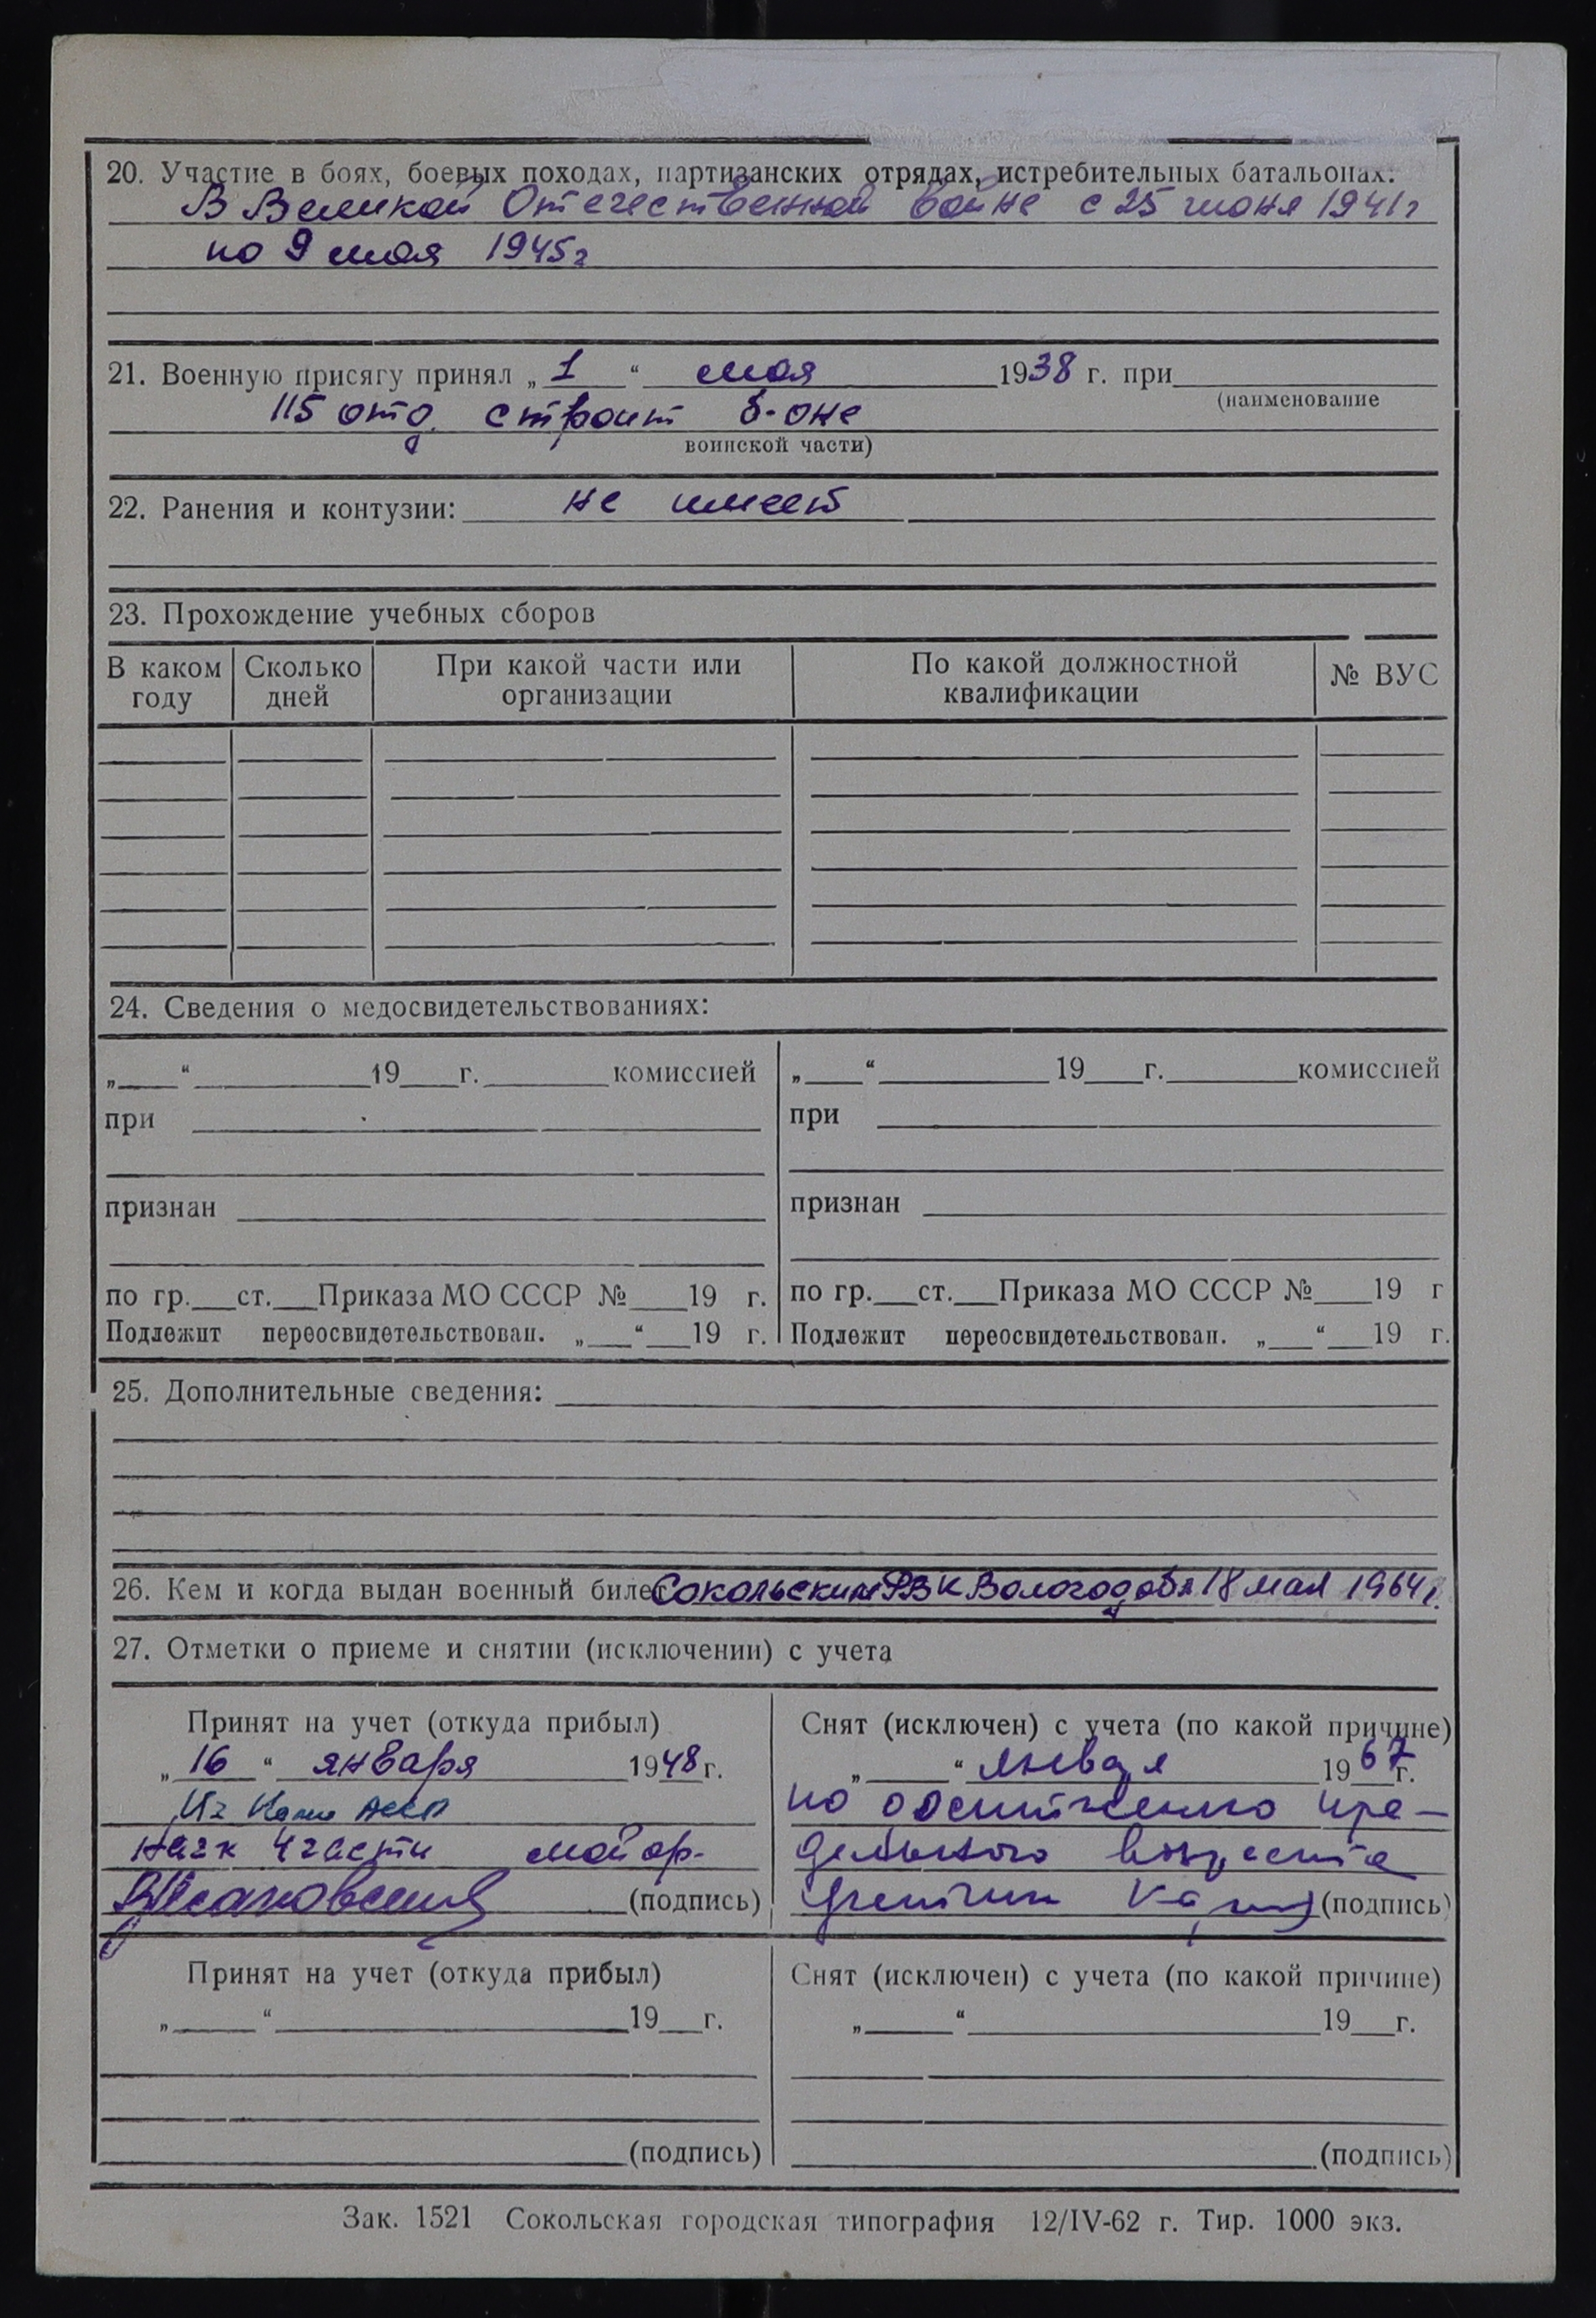 20. Участие в боях, боевых походах, партизанских отрядах, истребительных батальонах:
В Великой Отечественной войне с 25 июня 1941г
по 9 мая 1945г
21. Военную присягу принял „ 1 “ мая 1938 г. при
(наименование
115 отд. строит б-оне
воинской части)
22. Ранения и контузии: не имеет
23. Прохождение учебных сборов
В каком году Сколько дней При какой части или организации По какой должностной квалификации № ВУС
24. Сведения о медосвидетельствованиях:
„ “ 19 г. комиссией „ “ 19 г. комиссией
при при
признан признан
по гр. ст. Приказа МО СССР № 19 г. по гр. ст. Приказа МО СССР № 19 г
Подлежит переосвидетельствован. „ “ 19 г. Подлежит переосвидетельствован. „ “ 19 г.
25. Дополнительные сведения:
26. Кем и когда выдан военный билет Сокольским РВК Вологод обл 18 мая 1964г.
27. Отметки о приеме и снятии (исключении) с учета
Принят на учет (откуда прибыл) Снят (исключен) с учета (по какой причине)
„ 16 “ января 1948 г. „ “ января 1967 г.
Из Коми АССР по достижению пре-
начк 4 части майор дельного возраста
(подпись) (подпись)
Принят на учет (откуда прибыл) Снят (исключен) с учета (по какой причине)
„ “ 19 г. „ “ 19 г.
(подпись) (подпись)
Зак. 1521 Сокольская городская типография 12/IV-62 г. Тир. 1000 экз.